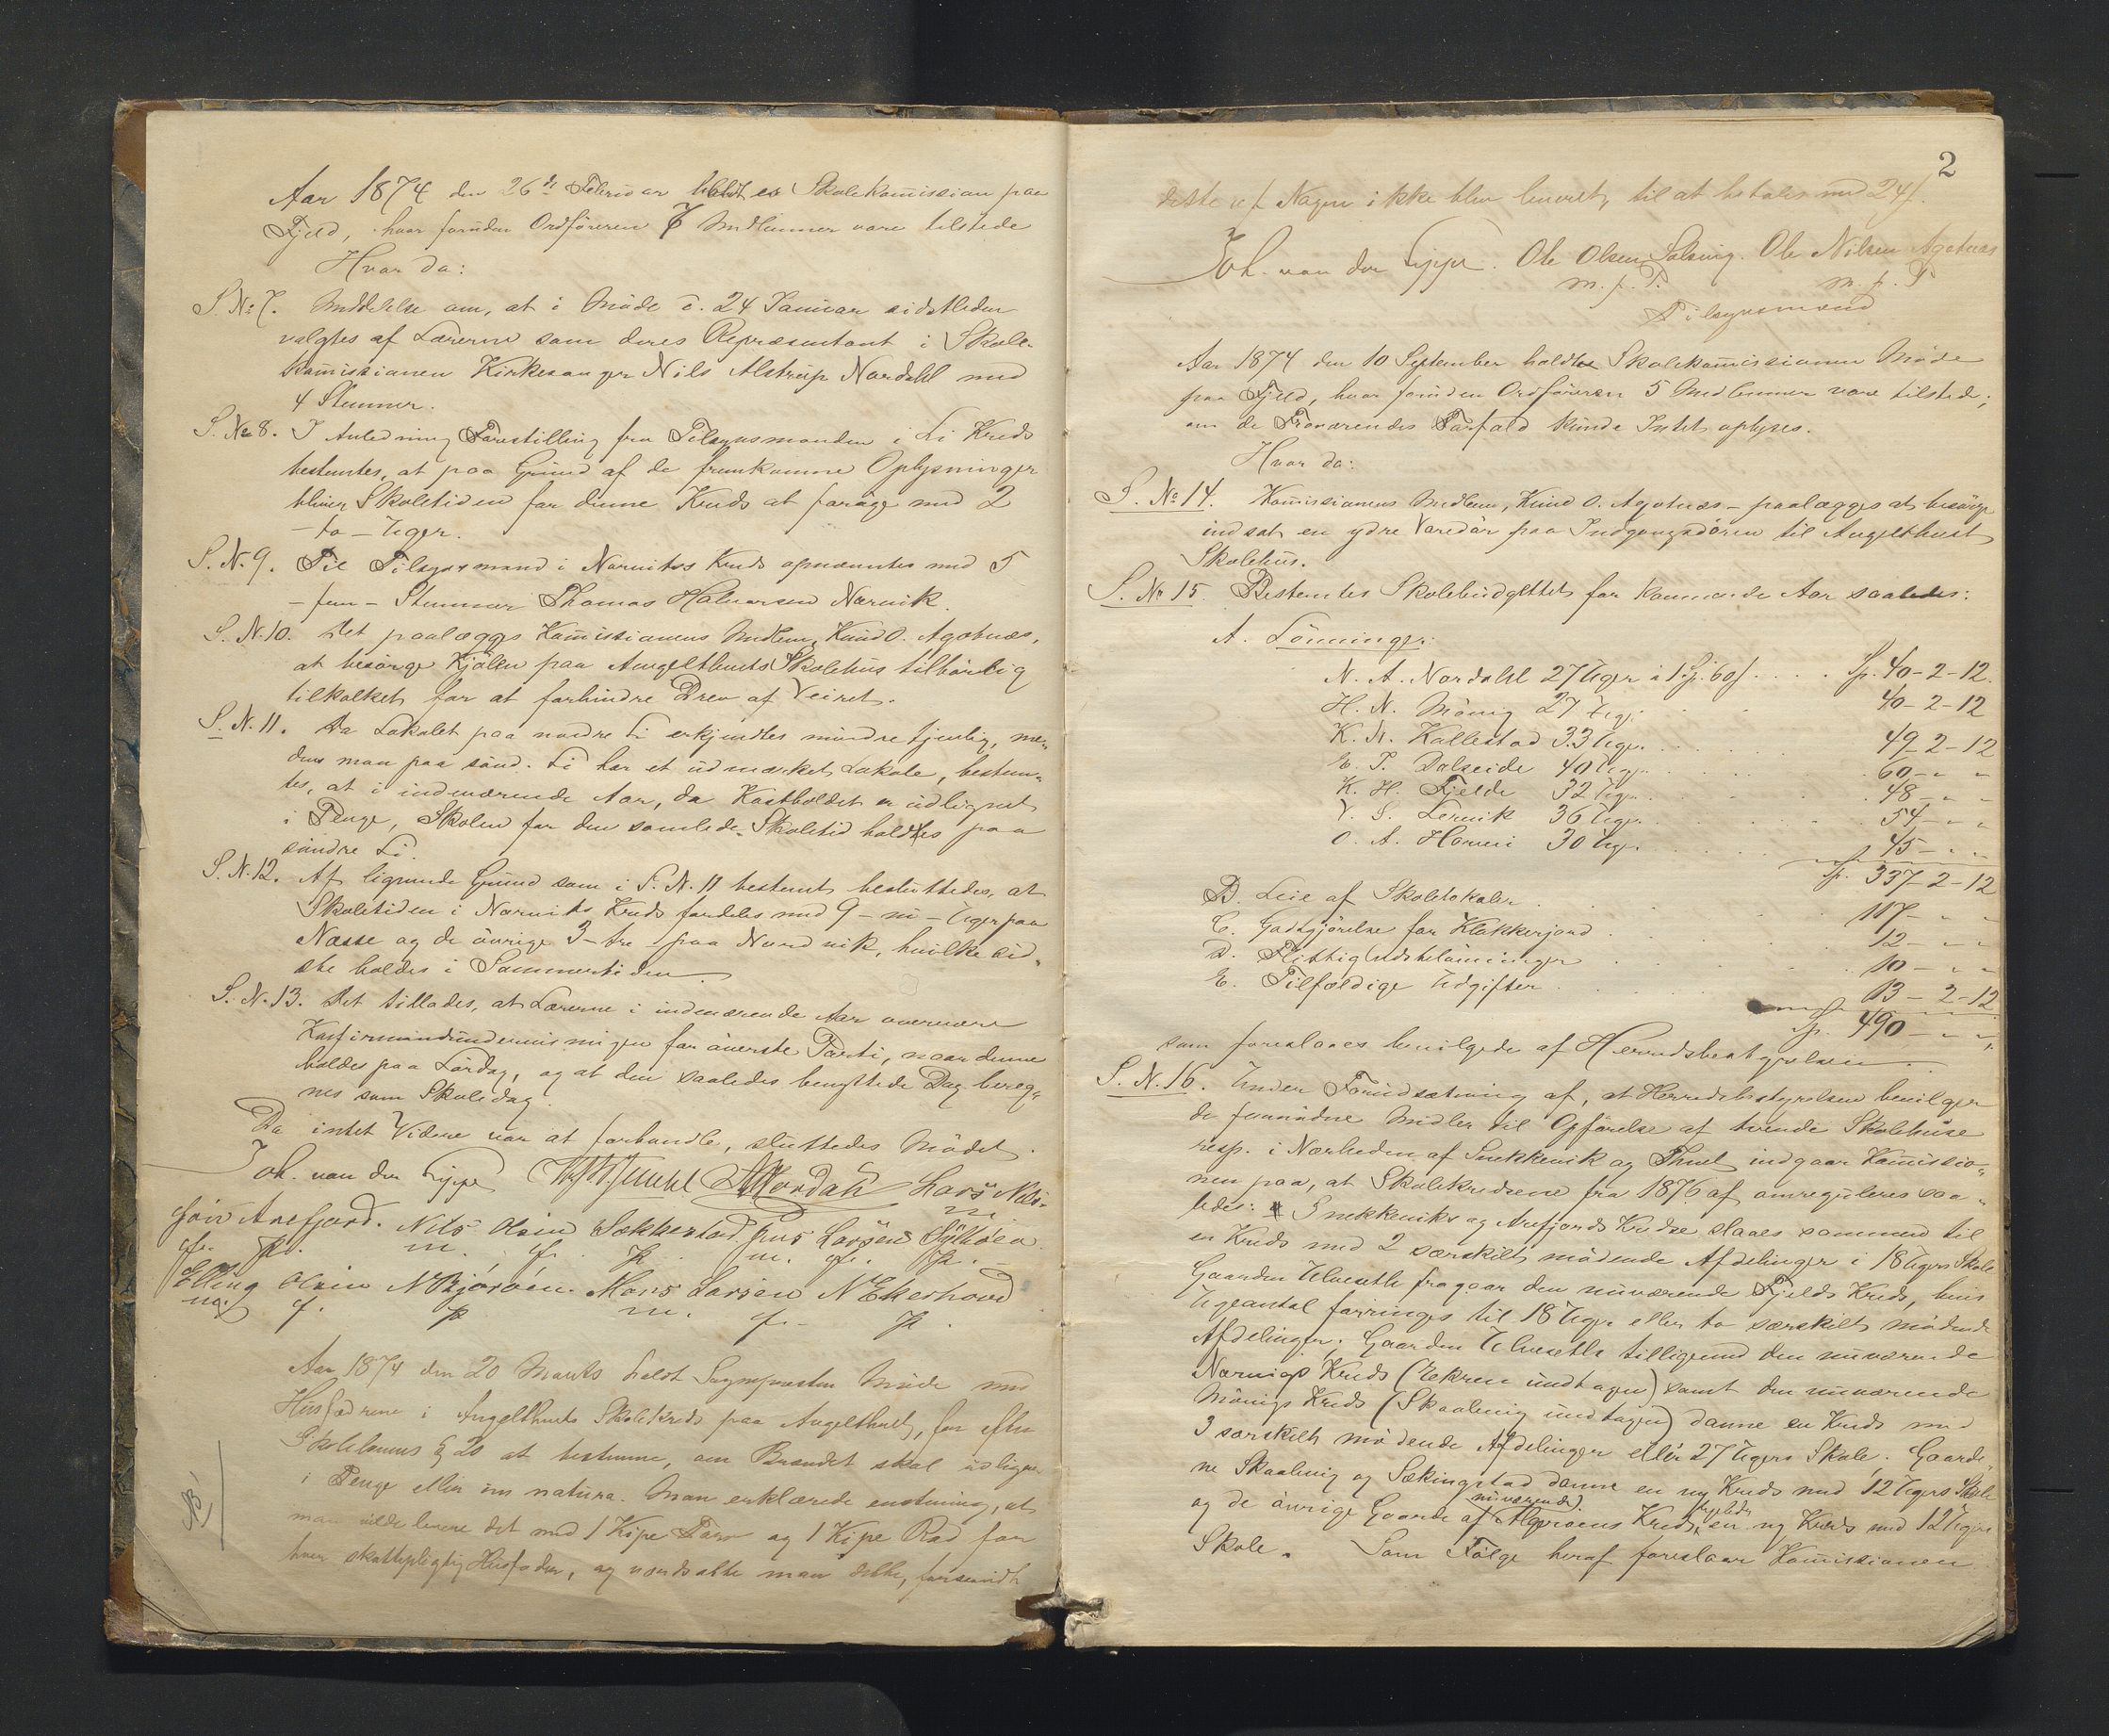 Aar 1874 den 26de Februar holdtes Skolekomission paa
Fjeld, hvor foruden Ordföreren 7 Medlemmer vare tilstede
Hvor da:
S. No 7. Meddelelse om, at i Möde d. 24 Januar sidstleden
valgtes af Lærerne som deres Repræsentant i Skole-
komissionen Kirkesanger Nils Alstrup Nordahl med
4 Stemmer.
S. No 8. I Anledning Forestilling fra Tilsynsmanden i Li Kreds
bestemtes, at paa Grund af de fremkomne Oplysninger
bliver Skoletiden for denne Kreds at foröge med 2
- to - Uger.
S. N. 9. Til Tilsynsmand i Nærviks Kreds opnævntes med 5
- fem - Stemmer Thomas Halvorsen Nærvik.
S. N. 10. Det paalægges Komissionens Medlem, Knud O. Agotnæs,
at besörge Kjölen paa Angelthuets Skolehus tilbörlig
tilkalket for at forhindre Drev af Veiret.
S. N. 11. Da Lokalet paa nordre Li erkjendtes mindre tjenlig, me-
dens man paa sönd. Li har et udmærket Lokale, bestem-
tes, at i indeværende Aar, da Kostholdet er udlignet
i Penge, Skolen for den samlede Skoletid holdtes paa
söndre Li.
S. N. 12. Af lignende Grund som i S. N. 11 bestemt besluttedes, at
Skoletiden i Nærviks Kreds fordeles med 9 - ni - Uger paa
Næsse og de övrige 3 - tre - paa Nordvik, hvilke sid-
ste holdes i Sommertiden
S. N. 13. Det tillades, at Lærerne i indeværende Aar overvære
Konfirmandundervisningen for överste Parti, naar denne
holdes paa Lördag, og at den saaledes benyttede Dag bereg-
nes som Skoledag.
Da intet Videre var at forhandle, sluttedes Mödet.
Joh. van der Lippe Nordahl Lars Nils-
Arefjord. Nils Olsen Sekkestad Jens Larsen Sylthöen
m. f. P. m. f. P.
Elling Olsen Bjoröen. Mons Larsen Ekerhovd
m. f. P. m. f. P.
Aar 1874 den 20 Marts holdt Sognepresten Möde med
Husfædrene i Angelthuets Skolekreds paa Angelthuet, for efter
Skolelovens § 20 at bestemme, om Brændet skal udlignes
i Penge eller in natura. Man erklærede enstemmig, at
man vilde levere det med 1 Kipe Torv og 1 Kipe Rod for
hver skattepligtig Husfader, og værdsatte man dette, forsaavidt
2
dette af Nogen ikke blev leveret, til at betales med 24 f.
Joh. van der Lippe. Ole Olsen Solsvig. Ole Nilsen Agotnæs
m. f. P. m. f. P
Tilsynsmænd
Aar 1874 den 10 September holdtes Skolekomissionen Möde
paa Fjeld, hvor foruden Ordföreren 5 Medlemmer vare tilstede;
om de Fraværendes Forfald kunde Intet oplyses.
Hvor da:
S. No 14. Komissionens Medlem, Knud O. Agotnæs - paalægges at besörge
indsat en ydre Varedör paa Indgangsdören til Angelthuet
Skolehus.
S. No 15. Bestemtes Skolebudgettet for kommende Aar saaledes:
A. Lönninger:
N. A. Nordahl 27 Uger à 1 Sp. 60 f . . . . Sp. 40-2-12.
H. N. Mövig 27 Uger . . 40-2-12
K. N. Kallestad 33 Uger . . . . 49-2-12
E. T. Dalseide 40 Uger . . . 60 - " - "
K. H. Fjelde 32 Uger . . . 48 - " - "
V. S. Lervik 36 Uger . . . 54 - " - "
O. A. Hamre 30 Uger . . . 45 - " - "
Sp. 337-2-12
B. Leie af Skolelokaler . . . 117 - " - "
C. Godtgjörelse for Klokkerjord . . . 12 - " - "
D. Flittighedsbelönninger . . . 10 - " - "
E. Tilfældige Udgifter . . . 13-2-12
Sp. 490 - " - "
som foreslaaes bevilgede af Herredsbestyrelsen.
S. N. 16. Under Forudsætning af, at Herredsbestyrelsen bevilger
de fornödne Midler til Opförelse af tvende Skolehuse
resp. i Nærheden af Snekkevik og Thuet indgaar Komissio-
nen paa, at Skolekredsene fra 1876 af omreguleres saa-
ledes: Snekkeviks og Arefjords Kredse slaaes sammen til
en Kreds med 2 særskilt mödende Afdelinger i 18 Ugers Skole
Gaarden Ulveseth fragaar den nuværende Fjelds Kreds, hvis
Ugeantal forringes til 18 Uger eller to særskilt mödende
Afdelinger; Gaarden Ulveseth tilligemed den nuværende
Nærvigs Kreds (Ekren undtagen) samt den nuværende
Mövigs Kreds (Skaalevig undtagen) danne en Kreds med
3 særskilt mödende Afdelinger eller 27 Ugers Skole; Gaarde-
ne Skaalevig og Sækingstad danne en ny Kreds med 12 Ugers Skole
og de övrige Gaarde af nuværende Algröens Kreds en ny Kreds med 12 Ugers
Skole. Som Fölge heraf foreslaar Komissionen